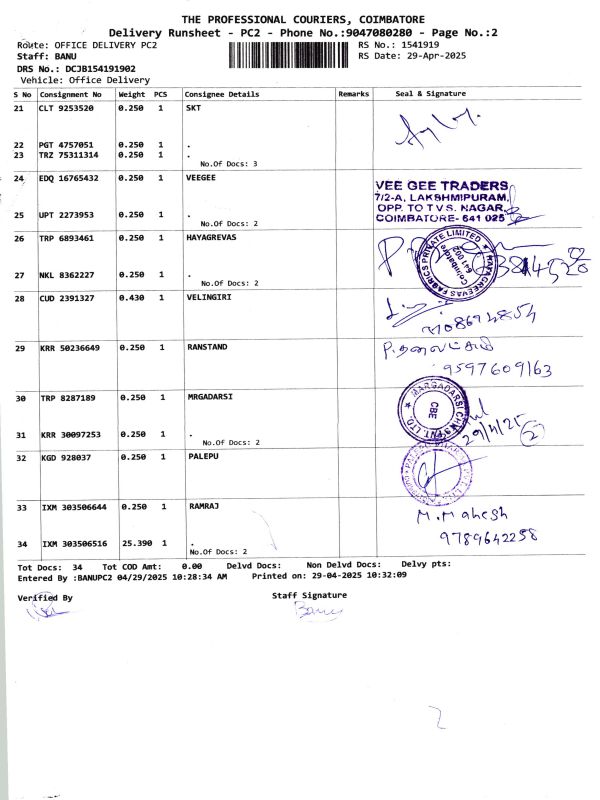 THE PROFESSIONAL COURIERS, COIMBATORE
Delivery Runsheet - PC2 - Phone No.:9047080280 - Page No.:2
Route: OFFICE DELIVERY PC2 RS No.: 1541919
Staff: BANU RS Date: 29-Apr-2025
DRS No.: DCJB154191902
Vehicle: Office Delivery
S No Consignment No Weight PCS Consignee Details Remarks Seal & Signature
21 CLT 9253520 0.250 1 SKT
22 PGT 4757051 0.250 1 .
23 TRZ 75311314 0.250 1 .
No.Of Docs: 3
24 EDQ 16765432 0.250 1 VEEGEE
VEE GEE TRADERS
7/2-A, LAKSHMIPURAM,
OPP. TO T.V.S. NAGAR,
COIMBATORE- 641 025
25 UPT 2273953 0.250 1 .
No.Of Docs: 2
26 TRP 6893461 0.250 1 HAYAGREVAS
27 NKL 8362227 0.250 1 .
No.Of Docs: 2
28 CUD 2391327 0.430 1 VELINGIRI
29 KRR 50236649 0.250 1 RANSTAND
9597609163
30 TRP 8287189 0.250 1 MRGADARSI
CBE
29/4/25
2
31 KRR 30097253 0.250 1 .
No.Of Docs: 2
32 KGD 928037 0.250 1 PALEPU
33 IXM 303506644 0.250 1 RAMRAJ
M. Mahesh
34 IXM 303506516 25.390 1 .
9789642258
No.Of Docs: 2
Tot Docs: 34 Tot COD Amt: 0.00 Delvd Docs: Non Delvd Docs: Delvy pts:
Entered By :BANUPC2 04/29/2025 10:28:34 AM Printed on: 29-04-2025 10:32:09
Verified By Staff Signature
Banu